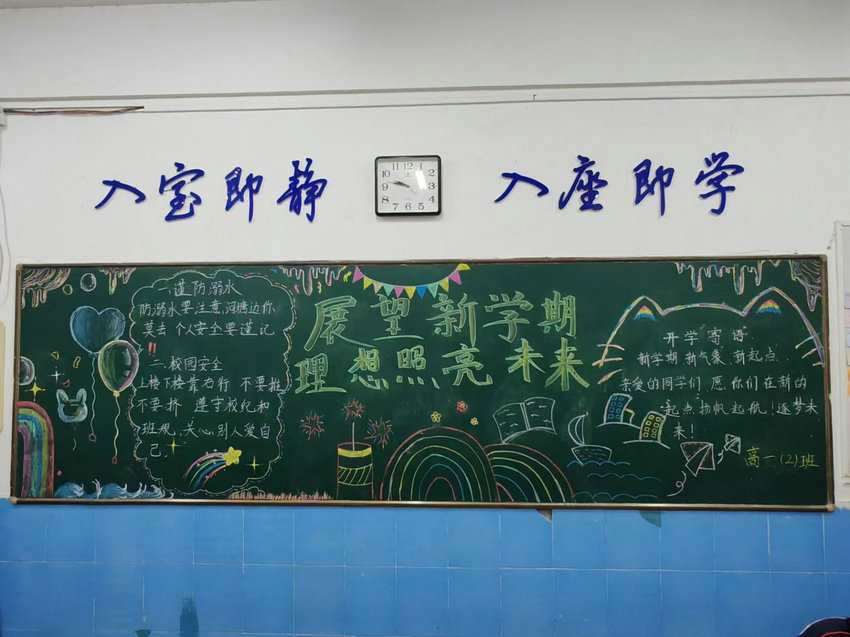 入室即静
入座即学
12
1
2
3
4
5
6
7
8
9
10
11
一.谨防溺水
防溺水要注意,河塘边你
莫去 个人安全要谨记
!!
二.校园安全
上楼下楼靠右行 不要推
不要挤 遵守校纪和
班规,关心别人爱自
己.
展望新学期
理想照亮未来
开学寄语
新学期 新气象 新起点.
亲爱的同学们 愿你们在新的
起点,扬帆起航!逐梦未
来!
高一(2)班